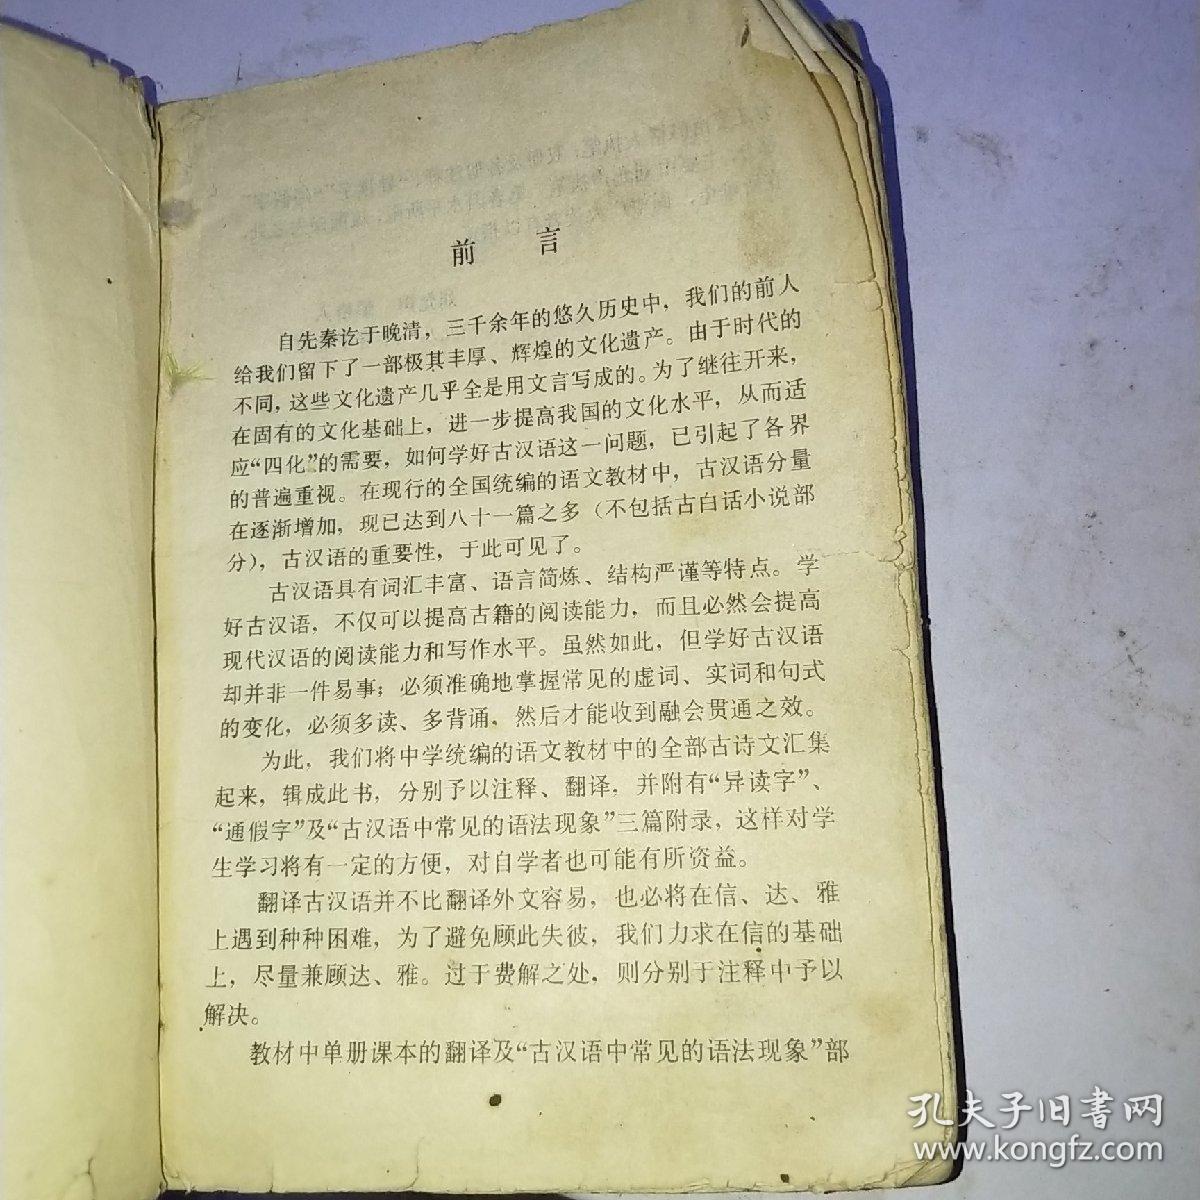 前言
自先秦讫于晚清，三千余年的悠久历史中，我们的前人
给我们留下了一部极其丰厚、辉煌的文化遗产。由于时代的
不同，这些文化遗产几乎全是用文言写成的。为了继往开来，
在固有的文化基础上，进一步提高我国的文化水平，从而适
应“四化”的需要，如何学好古汉语这一问题，已引起了各界
的普遍重视。在现行的全国统编的语文教材中，古汉语分量
在逐渐增加，现已达到八十一篇之多（不包括古白话小说部
分），古汉语的重要性，于此可见了。
古汉语具有词汇丰富、语言简炼、结构严谨等特点。学
好古汉语，不仅可以提高古籍的阅读能力，而且必然会提高
现代汉语的阅读能力和写作水平。虽然如此，但学好古汉语
却并非一件易事；必须准确地掌握常见的虚词、实词和句式
的变化，必须多读、多背诵，然后才能收到融会贯通之效。
为此，我们将中学统编的语文教材中的全部古诗文汇集
起来，辑成此书，分别予以注释、翻译，并附有“异读字”、
“通假字”及“古汉语中常见的语法现象”三篇附录，这样对学
生学习将有一定的方便，对自学者也可能有所资益。
翻译古汉语并不比翻译外文容易，也必将在信、达、雅
上遇到种种困难，为了避免顾此失彼，我们力求在信的基础
上，尽量兼顾达、雅。过于费解之处，则分别于注释中予以
解决。
教材中单册课本的翻译及“古汉语中常见的语法现象”部
孔夫子旧书网
www.kongfz.com